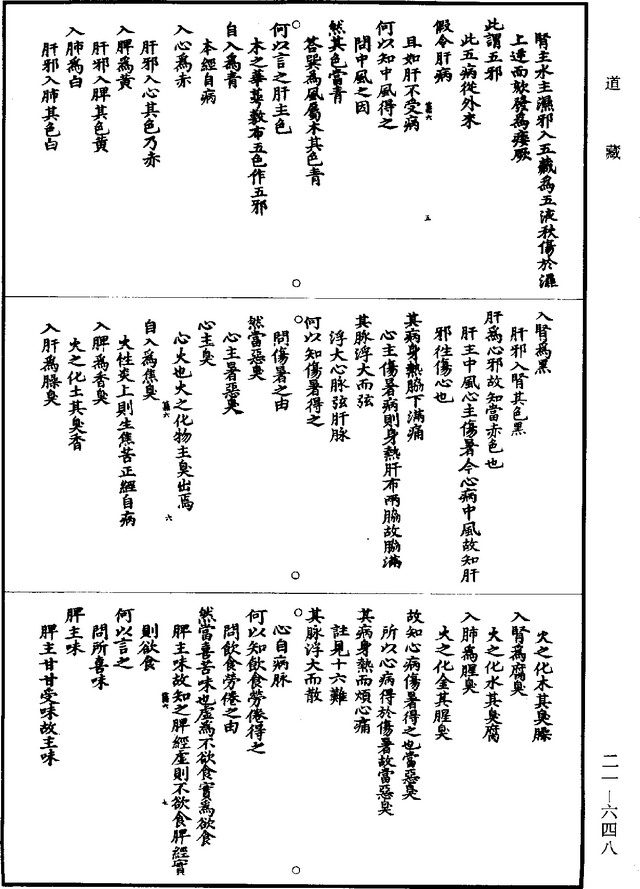 道藏
腎主水主濕邪入五藏為五液秋傷於濕
上逆而欬發為痿厥
此謂五邪
此五病從外來
假令肝病
且如肝不受病
何以知中風得之
問中風之因
然其色當青
答巽為風屬木其色青
何以言之肝主色
木之華萼敷布五色作五邪
自入為青
本經自病
入心為赤
肝邪入心其色乃赤
入脾為黃
肝邪入脾其色黃
入肺為白
肝邪入肺其色白
入腎為黑
肝邪入腎其色黑
肝為心邪故知當赤色也
肝主中風心主傷暑今心病中風故知肝
邪往傷心也
其病身熱脇下滿痛
心主傷暑病則身熱肝布兩脇故脇滿
其脉浮大而弦
浮大心脉弦肝脉
何以知傷暑得之
問傷暑之由
然當惡臭
心主暑惡臭
心主臭
心火也火之化物主臭出焉
自入為焦臭
火性炎上則生焦苦正經自病
入脾為香臭
火之化土其臭香
入肝為臊臭
火之化木其臭臊
入腎為腐臭
火之化水其臭腐
入肺為腥臭
火之化金其腥臭
故知心病傷暑得之也當惡臭
所以心病得於傷暑故當惡臭
其病身熱而煩心痛
註見十六難
其脉浮大而散
心自病脉
何以知飲食勞倦得之
問飲食勞倦之由
然當喜苦味也虛為不欲食實為欲食
脾主味故知之脾經虛則不欲食脾經實
則欲食
何以言之
問所喜味
脾主味
脾主甘甘受味故主味
二一—六四八